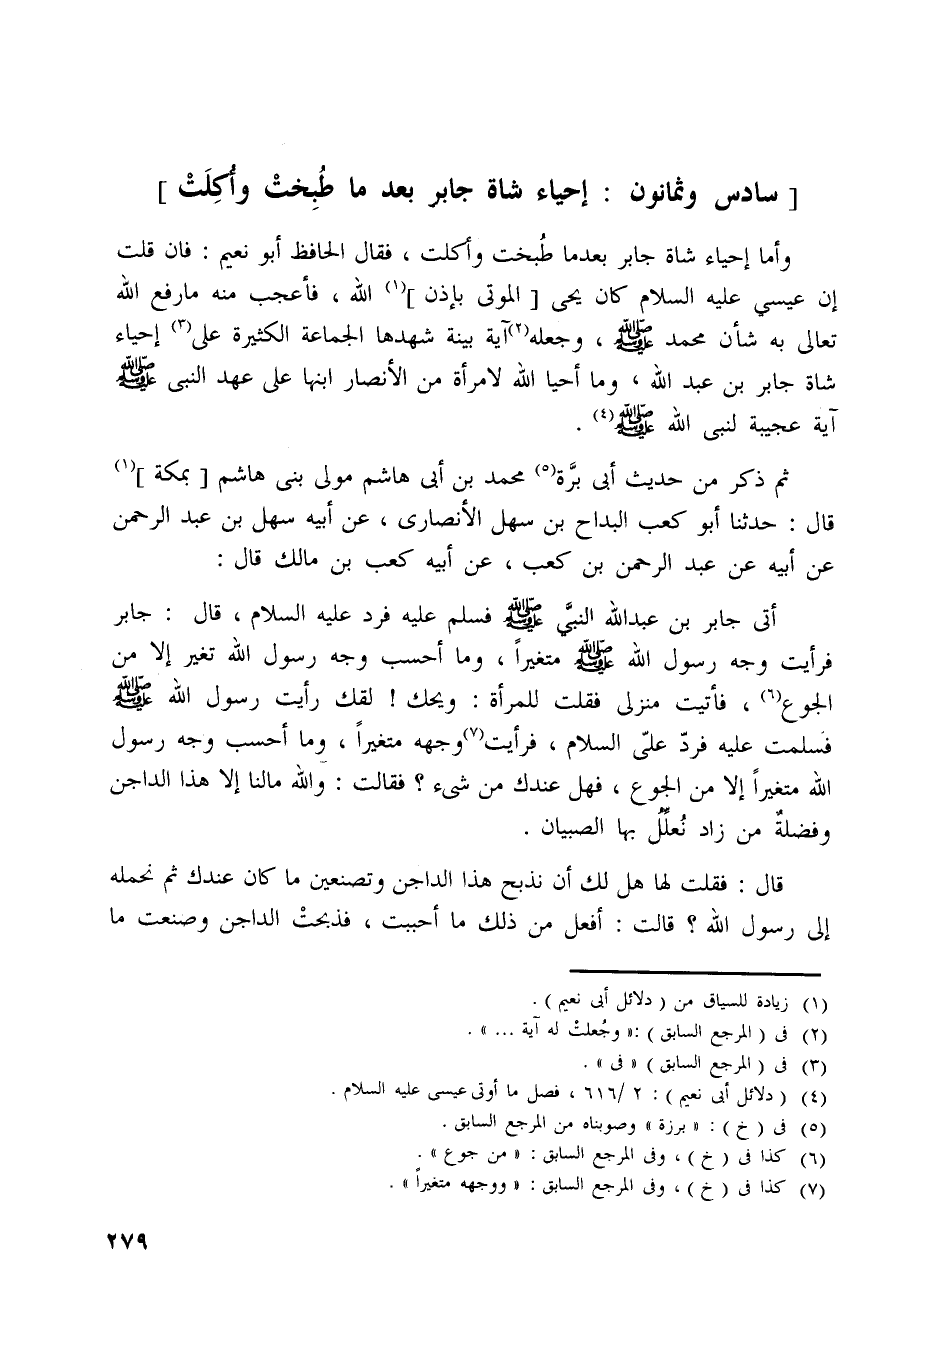 [ سادس وثمانون : إحياء شاة جابر بعد ما طُبِختْ وأُكِلَتْ ]
وأما إحياء شاة جابر بعدما طُبخت وأكلت ، فقال الحافظ أبو نعيم : فان قلت
إن عيسي عليه السلام كان يحى [ الموتى بإذن ](١) الله ، فأعجب منه مارفع الله
تعالى به شأن محمد ﷺ ، وجعله(٢)آية بينة شهدها الجماعة الكثيرة على(٣) إحياء
شاة جابر بن عبد الله ، وما أحيا الله لامرأة من الأنصار ابنها على عهد النبى ﷺ
آية عجيبة لنبى الله ﷺ(٤) .
ثم ذكر من حديث أبى برَّة(٥) محمد بن أبى هاشم مولى بنى هاشم [ بمكة ](١)
قال : حدثنا أبو كعب البداح بن سهل الأنصارى ، عن أبيه سهل بن عبد الرحمن
عن أبيه عن عبد الرحمن بن كعب ، عن أبيه كعب بن مالك قال :
أتى جابر بن عبدالله النبيَّ ﷺ فسلم عليه فرد عليه السلام ، قال : جابر
فرأيت وجه رسول الله ﷺ متغيراً ، وما أحسب وجه رسول الله تغير إلا من
الجوع(٦) ، فأتيت منزلى فقلت للمرأة : ويحك ! لقك رأيت رسول الله ﷺ
فسلمت عليه فردّ علىّ السلام ، فرأيت(٧)وجهه متغيراً ، وما أحسب وجه رسول
الله متغيراً إلا من الجوع ، فهل عندك من شىء ؟ فقالت : والله مالنا إلا هذا الداجن
وفضلةٌ من زاد نُعلِّلُ بها الصبيان .
قال : فقلت لها هل لك أن نذبح هذا الداجن وتصنعين ما كان عندك ثم نحمله
إلى رسول الله ؟ قالت : أفعل من ذلك ما أحببت ، فذبحتْ الداجن وصنعت ما
(١) زيادة للسياق من ( دلائل أبى نعيم ) .
(٢) فى ( المرجع السابق ) :« وجُعلتْ له آية ... » .
(٣) فى ( المرجع السابق ) « فى » .
(٤) ( دلائل أبى نعيم ) : ٢ /٦١٦ ، فصل ما أوتى عيسى عليه السلام .
(٥) فى ( خ ) : « برزة » وصوبناه من المرجع السابق .
(٦) كذا فى ( خ ) ، وفى المرجع السابق : « من جوع » .
(٧) كذا فى ( خ ) ، وفى المرجع السابق : « ووجهه متغيراً » .
٢٧٩